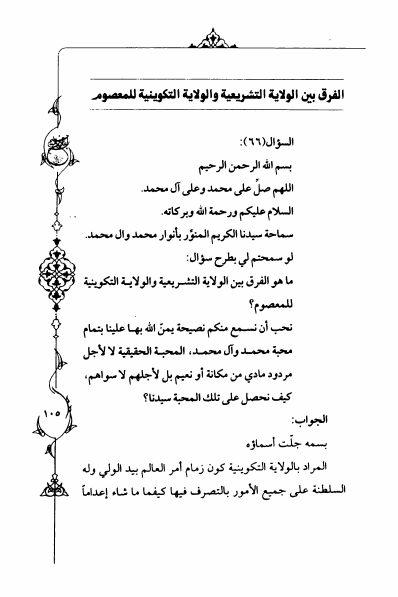 الفرق بين الولاية التشريعية والولاية التكوينية للمعصوم
السؤال(٦٦):
بسم الله الرحمن الرحيم
اللهم صلِّ على محمد وعلى آل محمد.
السلام عليكم ورحمة الله وبركاته.
سماحة سيدنا الكريم المنوّر بأنوار محمد وال محمد.
لو سمحتم لي بطرح سؤال:
ما هو الفرق بين الولاية التشريعية والولاية التكوينية
للمعصوم؟
نحب أن نسمع منكم نصيحة يمنّ الله بها علينا بتمام
محبة محمد وآل محمد، المحبة الحقيقية لا لأجل
مردود مادي من مكانة أو نعيم بل لأجلهم لا سواهم،
كيف نحصل على تلك المحبة سيدنا؟
١٠٥
الجواب:
بسمه جلّت أسماؤه
المراد بالولاية التكوينية كون زمام أمر العالم بيد الولي وله
السلطنة على جميع الأمور بالتصرف فيها كيفما ما شاء إعداماً